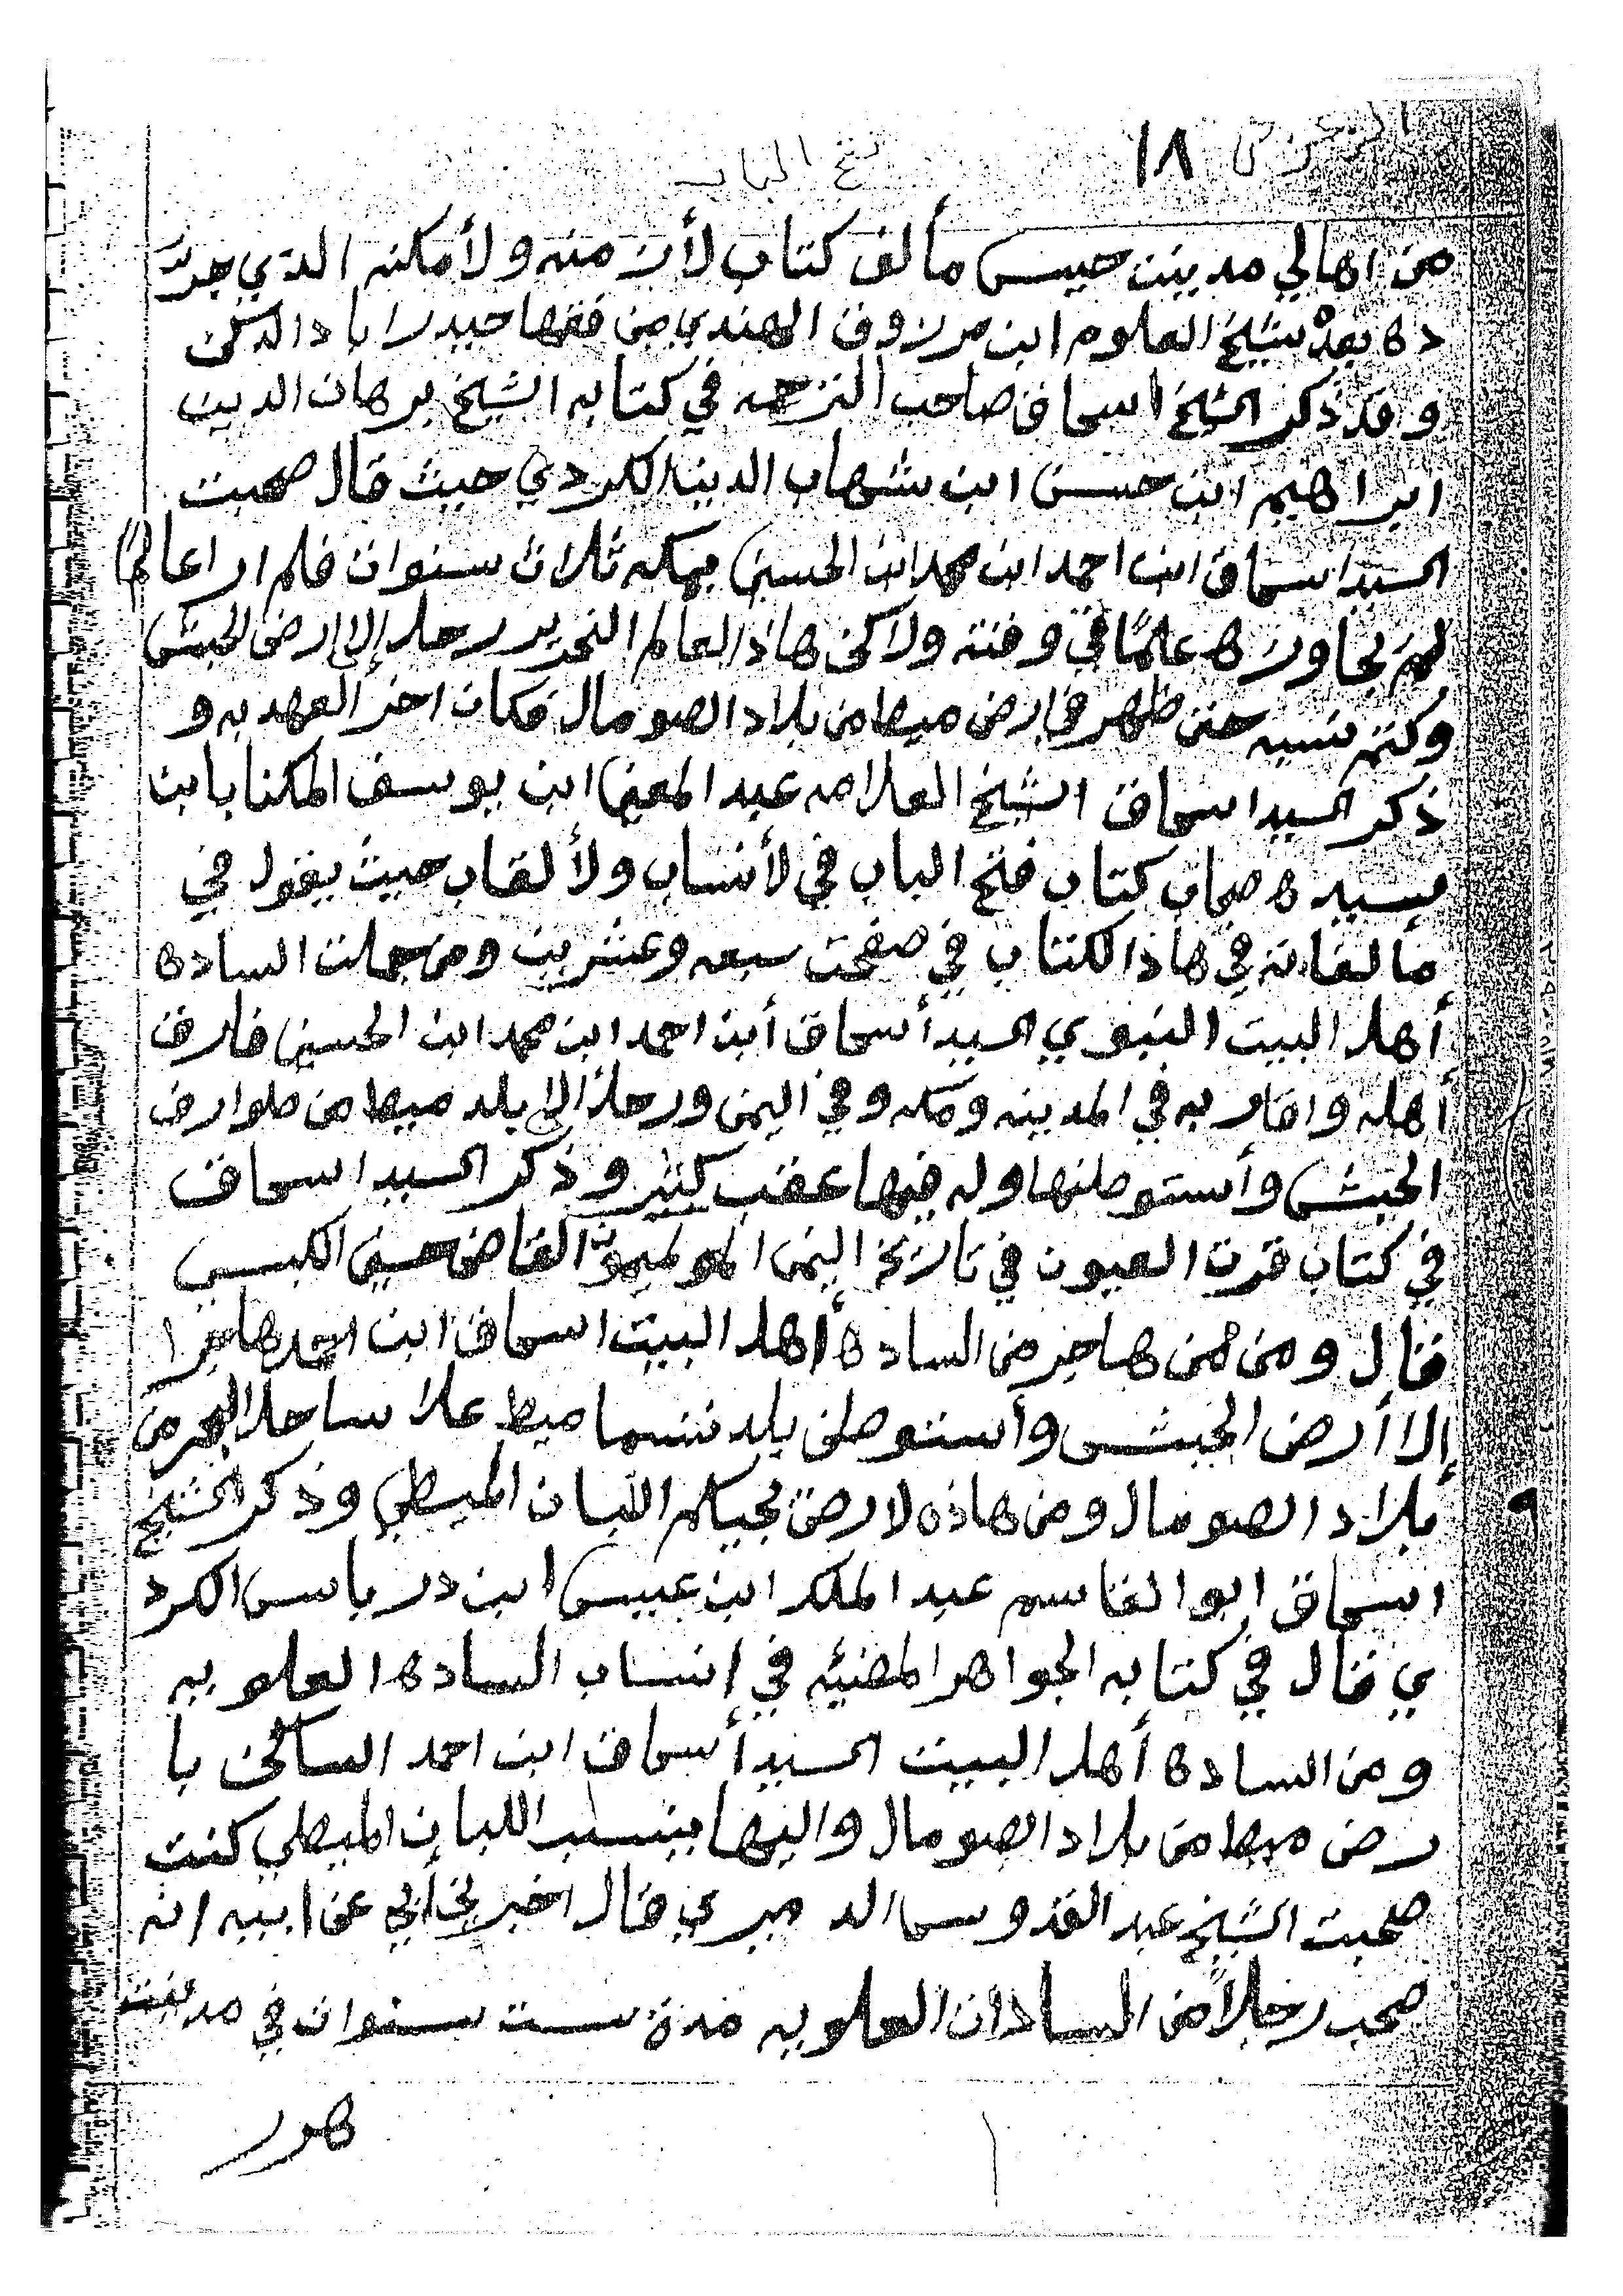 ١٨
فتح الباب
من اهالي مدينت حيس مألف كتاب لأزمنه ولأمكنه الذي جدد
ده بعده شيخ العلوم ابن مرزوق الهندي من فقها حيدر اباد الدكن
وقد ذكر الشيخ اسحاق صاحب الترجمه في كتابه الشيخ برهان الدين
ابراهيم ابن حسن ابن شهاب الدين الكردي حيث قال صحبت
السيد اسحاق ابن احمد ابن محمد ابن الحسين بمكه ثلاث سنوات فلم ار اعالمًا
لم يجاوزه علمًا في وقته ولاكن هاذا العالم النحرير رحل إلى ارض الحبش
وكتم نسبه حتى ظهر في ارض ميط من بلاد الصومال فكان اخر العهد به و
ذكر السيد اسحاق الشيخ العلامه عبد المغني ابن يوسف المكنا بابن
سيده صحاب كتاب فتح الباب في لأنساب ولألقاب حيث يقول في
مألفاته في هاذا لكتاب في صفحت سبعه وعشرين ومن جملت الساده
أهل البيت النبوي السيد أسحاق أبن احمد ابن محمد ابن الحسين فارق
أهله واقاربه في المدينه ومكه وفي اليمن ورحل الى بلد ميط من طوارف
الحبش وأستوطنها وله فيها عقب كثير وذكر السيد اسحاق
في كتاب قرت العيون في تاريخ اليمن الميمون القاضي حسين الكبسي
فقال ومن من هاجر من الساده أهل البيت اسحاق ابن احمد هاجرا
إلا أرض الحبش وأستوطن بلد تسما ميط علا ساحل البحر من
بلاد الصومال ومن هاذه لارض يجيكم اللبان الميطي وذكر الشيخ
اسحاق ابو القاسم عبد الملك ابن عيسى ابن درباس الكرد
ي فقال في كتابه الجواهر المضئيه في انساب الساده العلويه
ومن الساده أهل البيت السيد أسحاق ابن احمد الساكن با
رض ميط من بلاد الصومال واليها ينسب اللبان الميطي كنت
صحبت الشيخ عبد القدوس الد ميري قال اخبرني أبي عن ابيه انه
صحب رجلاً من السادات العلويه مدة ست سنوات في مدينت
هرر
٩